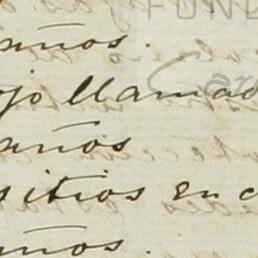 FUND
anos.
ojo llamad
anos
sitios en c
anos.